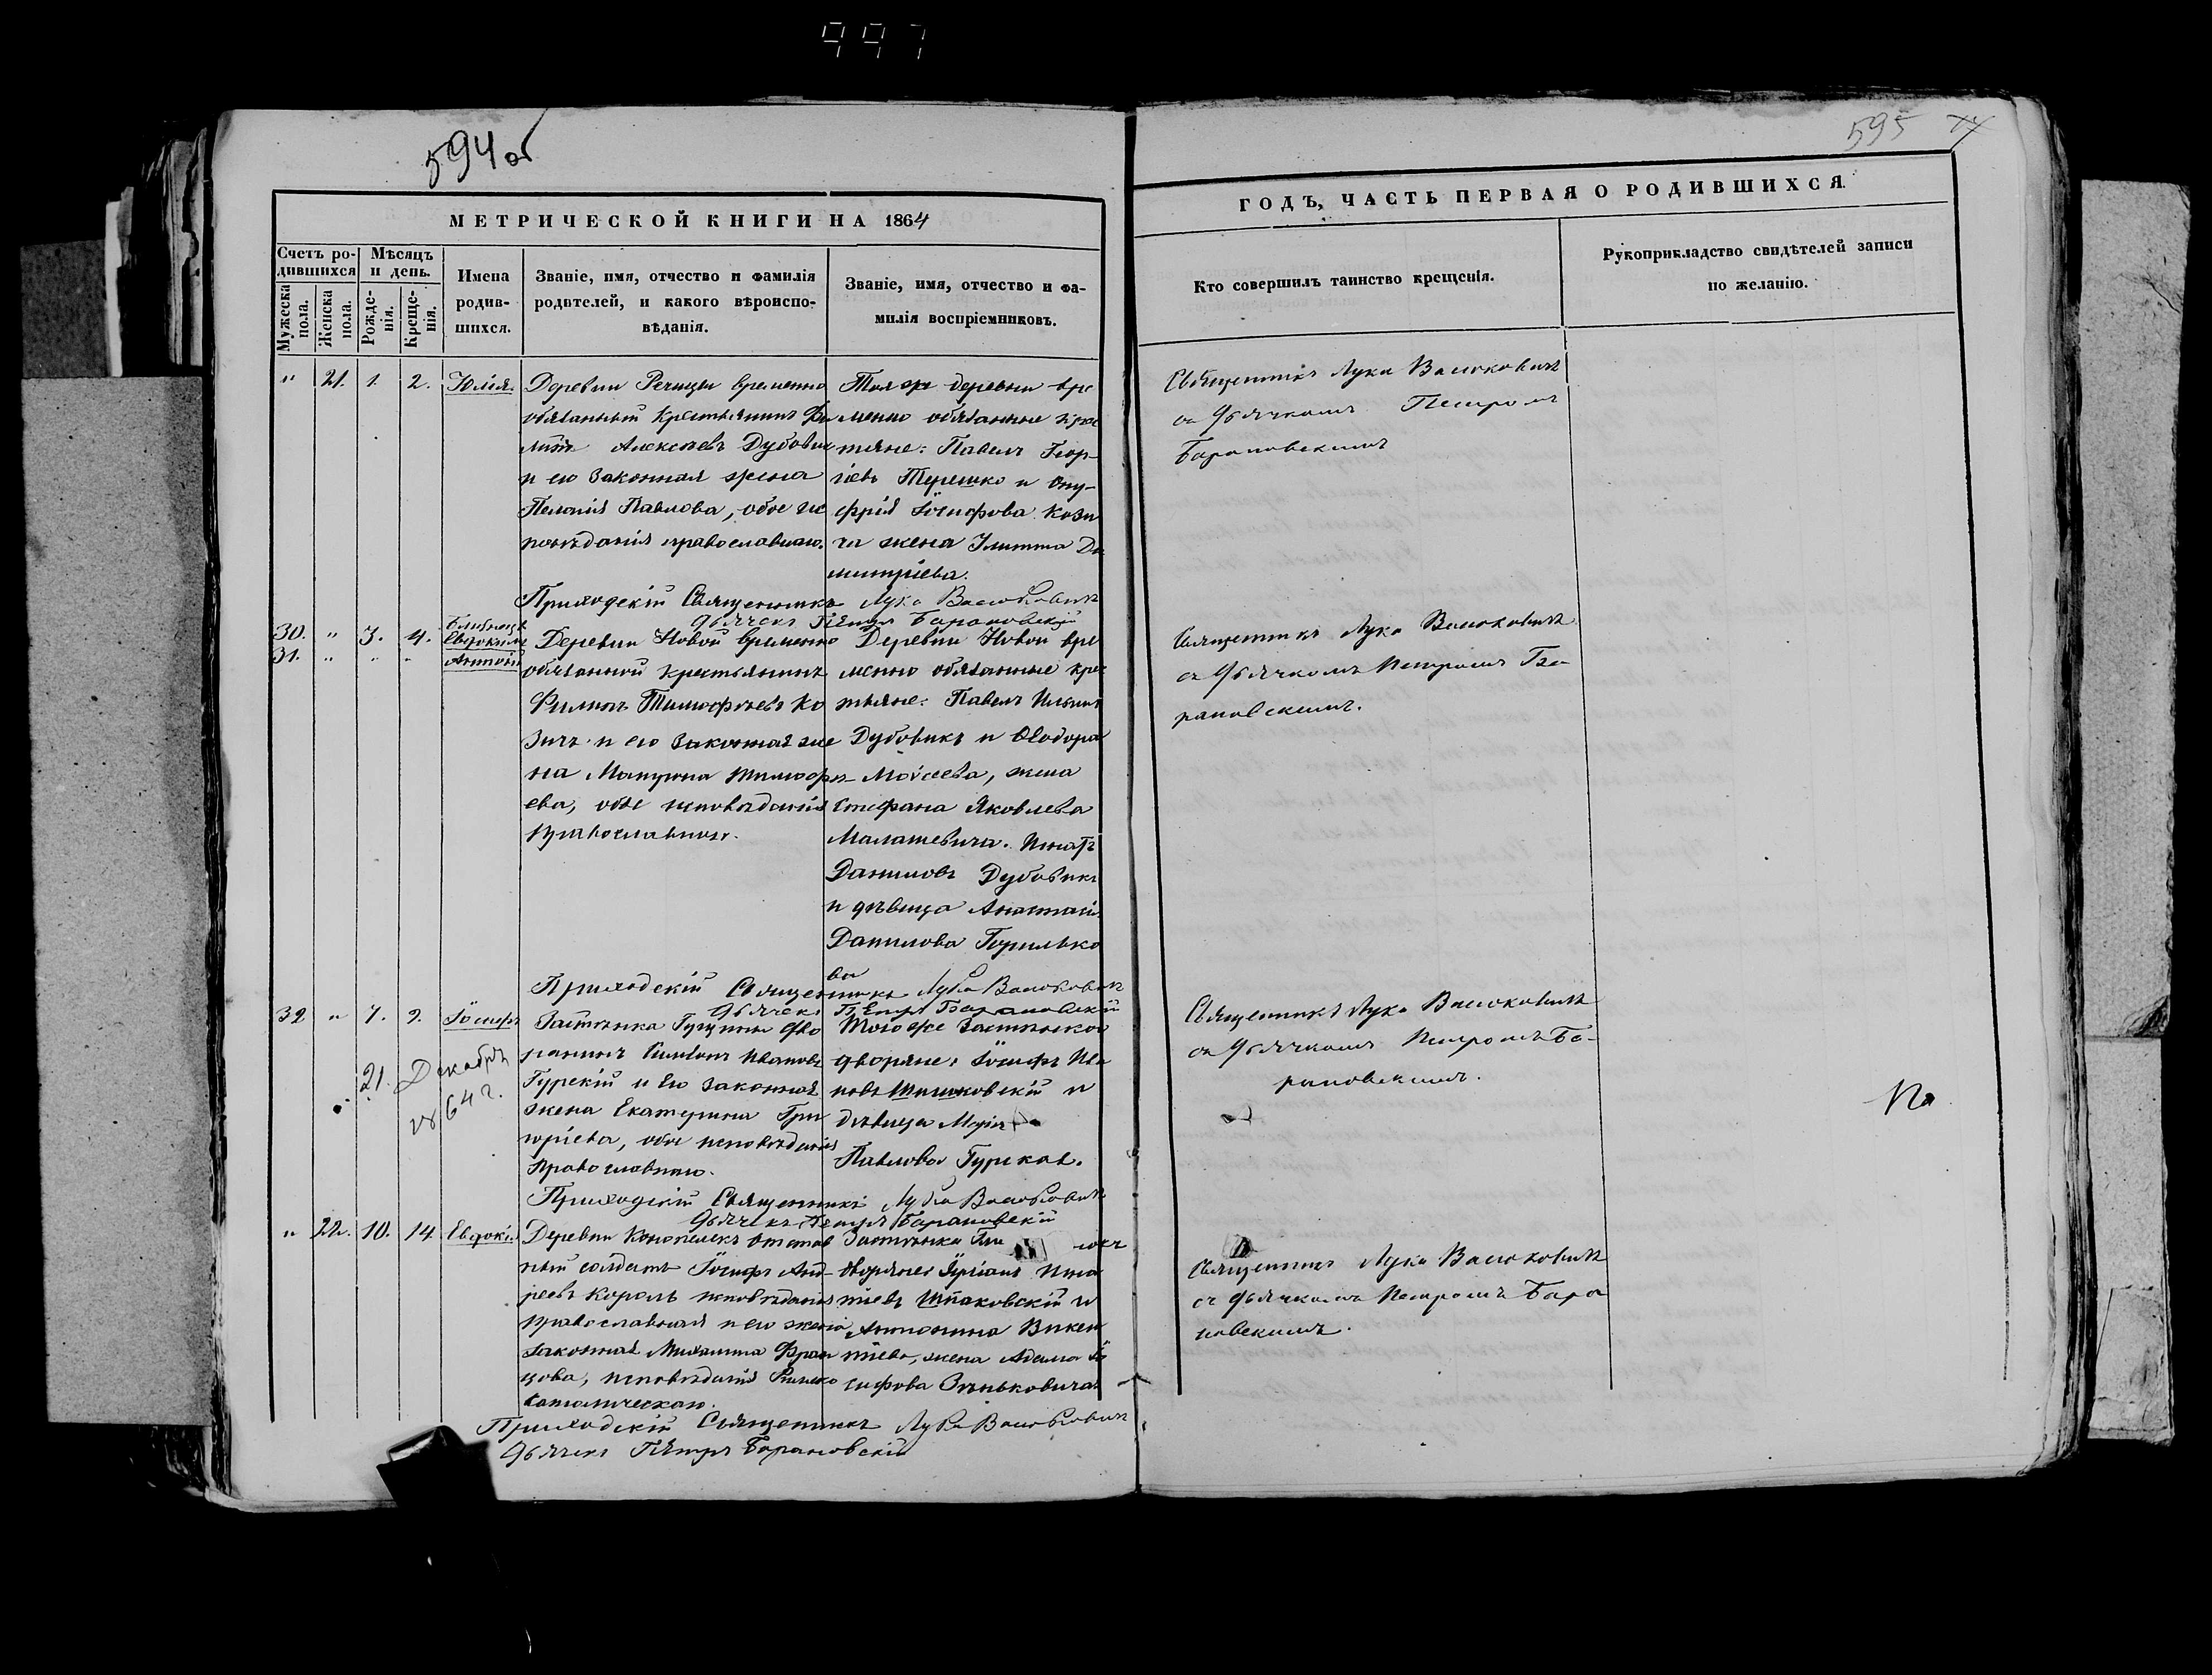 997
594об
595
МЕТРИЧЕСКОЙ КНИГИ НА 1864
ГОДЪ, ЧАСТЬ ПЕРВАЯ О РОДИВШИХСЯ.
Счетъ ро-
дившихся
Мужеска
пола.
Женска
пола.
Мѣсяцъ
и день.
Рожде-
нія.
Креще-
нія.
Имена
родив-
шихся.
Званіе, имя, отчество и фамилія
родителей, и какого вѣроиспо-
вѣданія.
Званіе, имя, отчество и фа-
милія воспріемниковъ.
Кто совершилъ таинство крещенія.
Рукоприкладство свидѣтелей записи
по желанію.
" 21. 1. 2. Юлія.
Деревни Речицы временно
обязанный крестьянинъ Фи
Алексѣевъ Дубовик
и его законная жена
Пелагія Павлова, обое ис
повѣданія православнаго.
Той же деревни вре
менно обязанные крес
тьяне: Павелъ Геор-
гіевъ Терешко и Ону-
фрія Іосифова Кози
ча жена Улитта Ди
митріева.
Священникъ Лука Васюковичъ
съ дьячкомъ Петромъ
Барановскимъ
Приходскій Священникъ Лука Васюковичъ
дьячекъ Петръ Барановскій
30. " 3. 4. Близнецы Евдокимъ
31. " " " Антоній
Деревни Новой временно
обязанной крестьянинъ
Филипъ Тимофеевъ Ко
зичъ и его законная же
на Матрона Тимофе
ева, обое исповѣданія
православнаго.
Деревни Новой вре
менно обязанные крес
тьяне: Павелъ Ильинъ
Дубовикъ и Ѳеодора
Моисеева, жена
Стефана Яковлева
Малашевича. Игнатъ
Даниловъ Дубовикъ
и дѣвица Анастасія
Данилова Горилько
ва
Священникъ Лука Васюковичъ
съ дьячкомъ Петромъ Ба-
рановскимъ.
Приходскій Священникъ Лука Васюковичъ
дьячекъ Петръ Барановскій
32 " 7. 9. Іосифъ
21. Декабря
1864 г.
Застѣнка дво
рянинъ Иванов
Гурскій и его законная
жена Екатерина Гри
горіева, обое исповѣданія
православнаго.
Того же застѣнка
дворяне: Іосифъ Ива
новъ Шишковскій и
дѣвица Марія
Павлова Гурская.
Священникъ Лука Васюковичъ
съ дьячкомъ Петромъ Ба-
рановскимъ.
Приходскій Священникъ Лука Васюковичъ
дьячекъ Петръ Барановскій
" 22. 10. 14. Евдокія
Деревни Конопелекъ отстав
ный солдатъ Іосифъ Анд-
реевъ Король исповѣданія
православнаго и его жена
законная Михалина Фран
цова, исповѣданія Римско
католическаго.
Застѣнка
дворяне: Игна
тіевъ Шпаковскій и
Антонина Викен
тіева, жена Адама Іо
сифова Зеньковича
Священникъ Лука Васюковичъ
съ дьячкомъ Петромъ Бара
новскимъ.
Приходскій Священникъ Лука Васюковичъ
Дьячекъ Петръ Барановскій